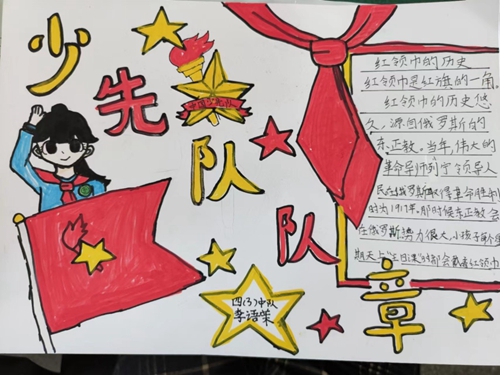 少先队队章
中国少先队
红领巾的历史
红领巾是红旗的一角。
红领巾的历史悠
久,源自俄罗斯的
东正教。当年,伟大的
革命导师列宁领导人
民在俄罗斯取得革命胜利
时为1917年。那时候东正教会
在俄罗斯势力很大,小孩子
期天上"主日课"时都会戴着红领巾
四(3)中队
李语荣